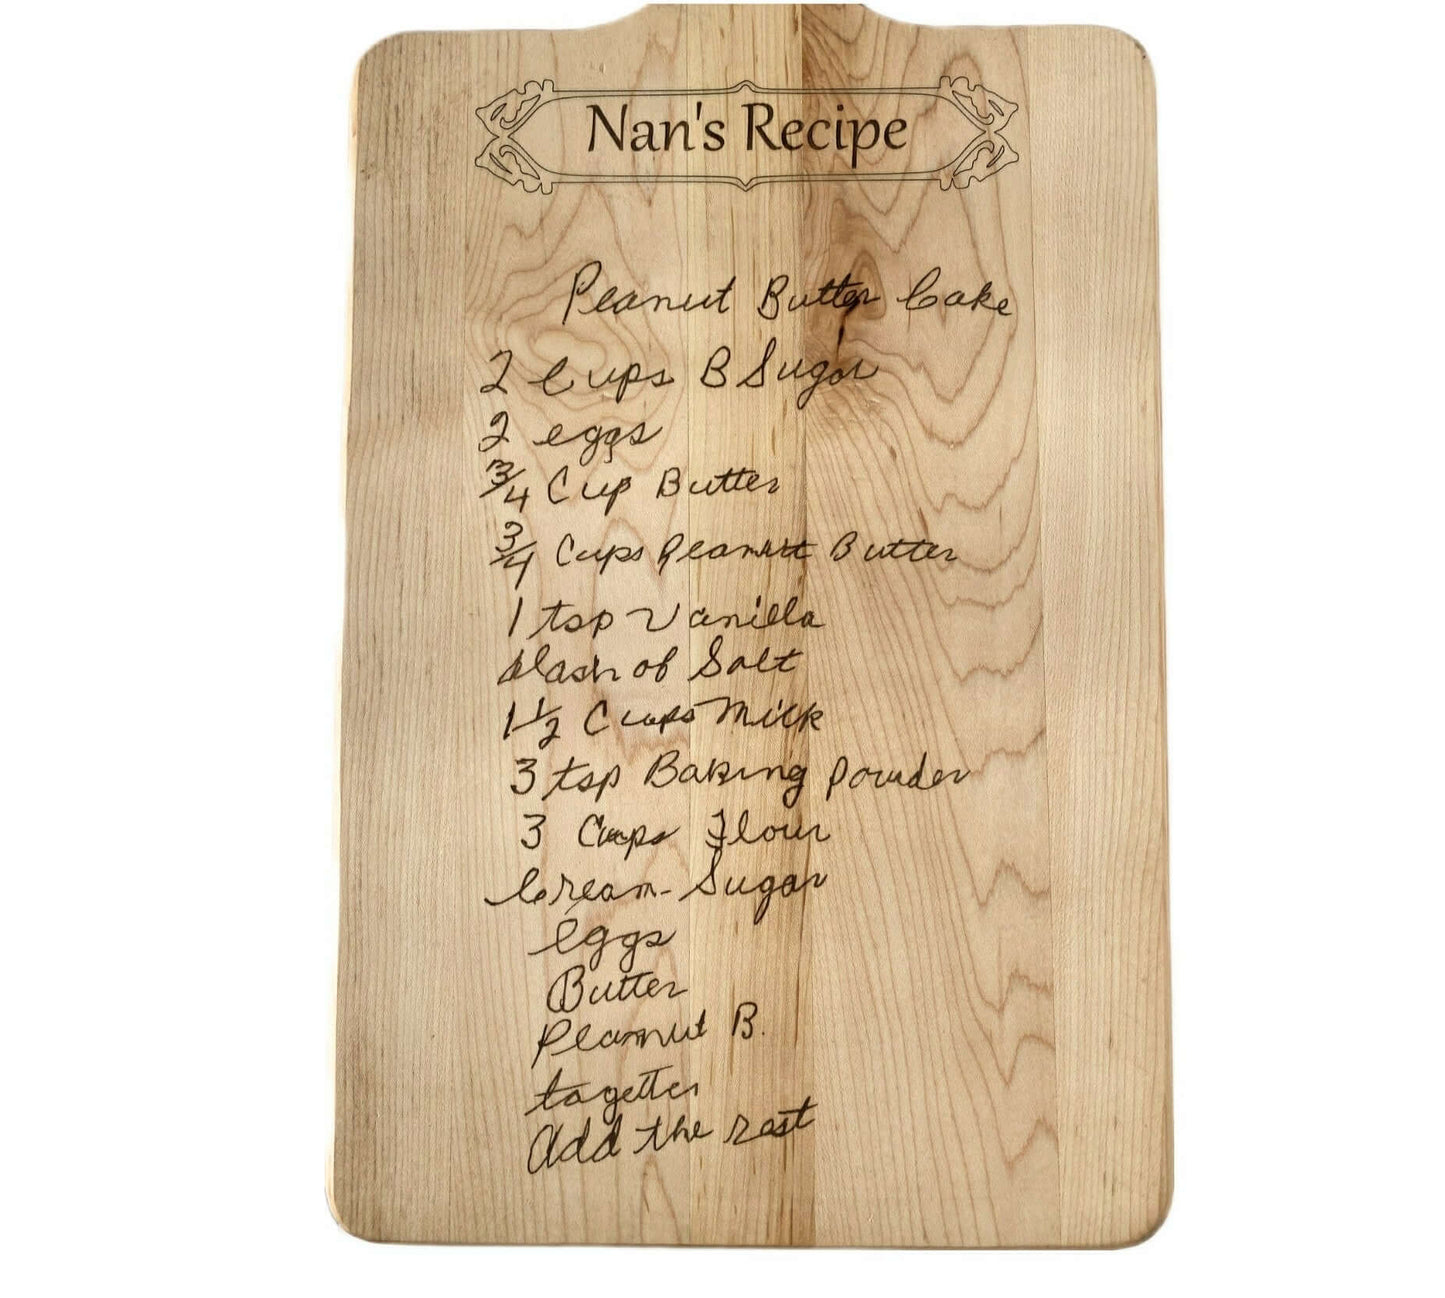 Nan's Recipe
Peanut Butter Cake
2 Cups B Sugar
2 eggs
3/4 Cup Butter
3/4 Cups Peanutt Butter
1 tsp Vanilla
dash of Salt
1 1/2 Cups Milk
3 tsp Baking Powder
3 Cups Flour
Cream - Sugar
eggs
Butter
Peanut B.
togetter
Add the rest